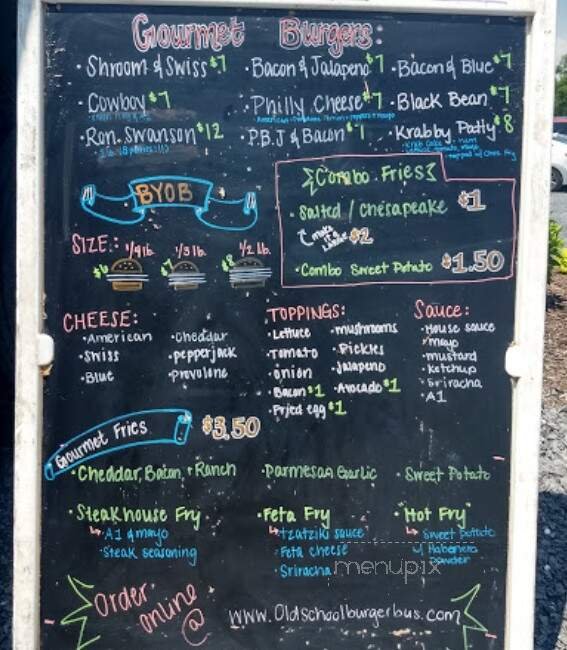 Gourmet Burgers:
· Shroom & Swiss $7 · Bacon & Jalapeno $7 · Bacon & Blue $7
· Cowboy $7 · Philly Cheese $7 · Black Bean $7
· Ron Swanson $12 · P.B.J & Bacon $7 · Krabby Patty $8
BYOB
SIZE: 1/4 lb. 1/3 lb. 1/2 lb.
$6 $7 $8
Combo Fries
· Salted / Chesapeake $1
make it a large $2
· Combo Sweet Potato $1.50
CHEESE:
· American · Cheddar
· Swiss · pepperjack
· Blue · Provolone
TOPPINGS:
· Lettuce · mushrooms
· Tomato · Pickles
· onion · Jalapeno
· Bacon $1 · Avocado $1
· Fried egg $1
Sauce:
· House sauce
· mayo
· mustard
· Ketchup
· Sriracha
· A1
Gourmet Fries $3.50
· Cheddar, Bacon, + Ranch · Parmesan Garlic · Sweet Potato
· Steakhouse Fry
A1 & mayo
· Steak seasoning
· Feta Fry
tzatziki sauce
· Feta cheese
· Sriracha
· Hot Fry
Sweet potato
w/ Habanero
powder
menupix
Order online @ www.Oldschoolburgerbus.com